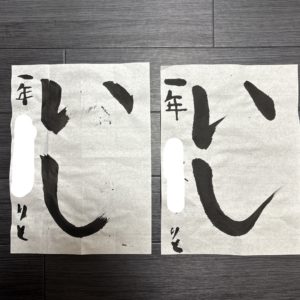 いし
一年
りと
いし
一年
りと